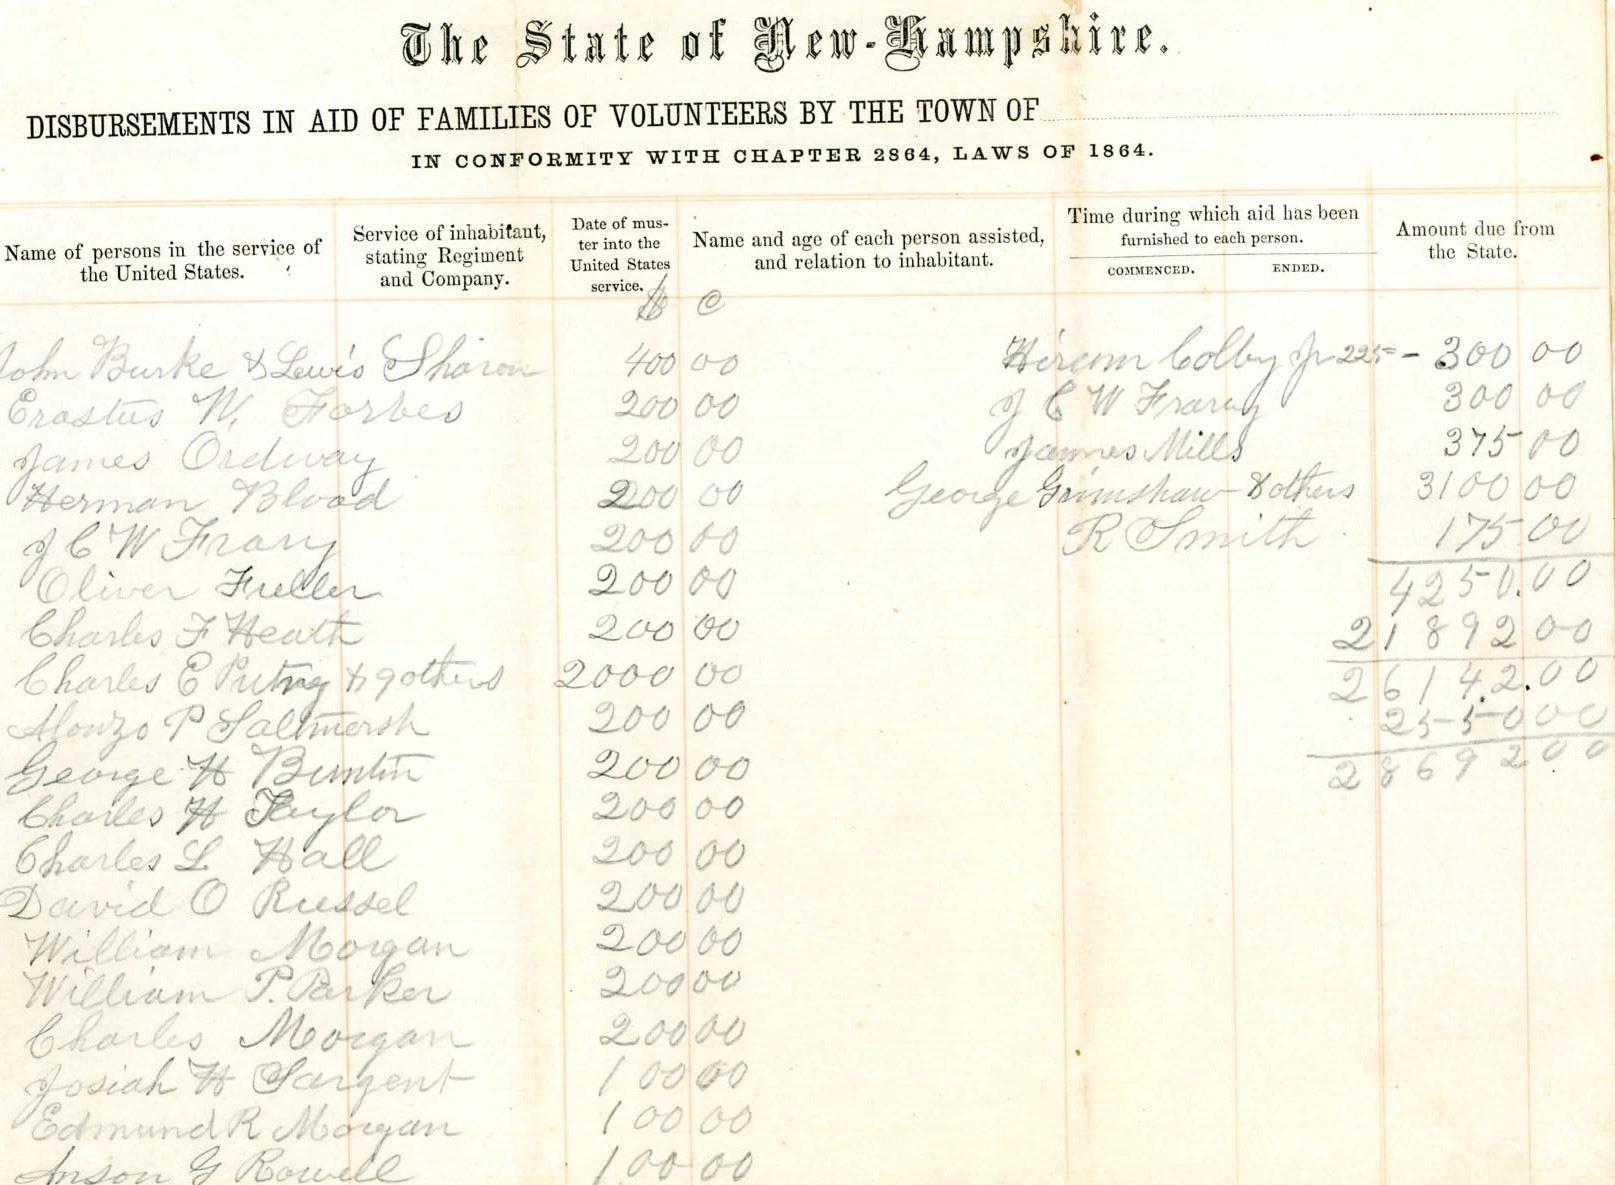 The State of New-Hampshire.
DISBURSEMENTS IN AID OF FAMILIES OF VOLUNTEERS BY THE TOWN OF
IN CONFORMITY WITH CHAPTER 2864, LAWS OF 1864.
Name of persons in the service of the United States.
Service of inhabitant, stating Regiment and Company.
Date of muster into the United States service.
Name and age of each person assisted, and relation to inhabitant.
Time during which aid has been furnished to each person.
COMMENCED. ENDED.
Amount due from the State.
$ c
John Burke & Lewis Sharon 400 00
Erastus W. Forbes 200 00
James Ordway 200 00
Herman Blood 200 00
J C W Frary 200 00
Oliver Fuller 200 00
Charles F Heath 200 00
Charles E & 9 others 2000 00
Alonzo P Saltmarsh 200 00
George H Buntin 200 00
Charles H Taylor 200 00
Charles L Hall 200 00
David O Russel 200 00
William Morgan 200 00
William P. Parker 200 00
Charles Morgan 200 00
Josiah H Sargent 100 00
Edmund R Morgan 100 00
Anson G Rowell 100 00
Hiram Colby Jr 225 - 300 00
J C W Frary 300 00
James Mills 375 00
George Grimshaw & others 3100 00
R Smith 175 00
4250.00
21892 00
26142.00
2550 00
28692 00